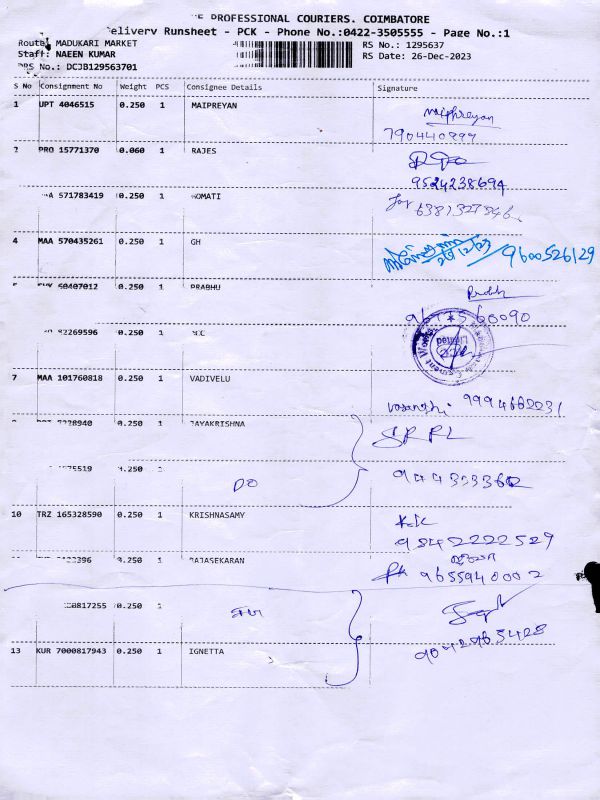 PROFESSIONAL COURIERS. COIMBATORE
Runsheet - PCK - Phone No.:0422-3505555 - Page No.:1
Route: MADUKARI MARKET
RS No.: 1295637
Staff: NAEEN KUMAR
RS Date: 26-Dec-2023
DRS No.: DCJB129563701
S No Consignment No Weight PCS Consignee Details Signature
1 UPT 4046515 0.250 1 MAIPREYAN
maiphreyan
2 PRO 15771370 0.060 1 RAJES
9524238694
571783419 0.250 1 GOMATI
For 6381327346
4 MAA 570435261 0.250 1 GH
9600526129
50407012 0.250 1 PRABHU
Prabh
60090
82269596 0.250 1
7 MAA 101760818 0.250 1 VADIVELU
9994662231
8940 0.250 1 JAYAKRISHNA
SRPL
75519 0.250 1
DO
10 TRZ 165328590 0.250 1 KRISHNASAMY
K.K
9842222529
2396 0.250 1 RAJASEKARAN
9655940002
0817255 0.250 1
13 KUR 7000817943 0.250 1 IGNETTA